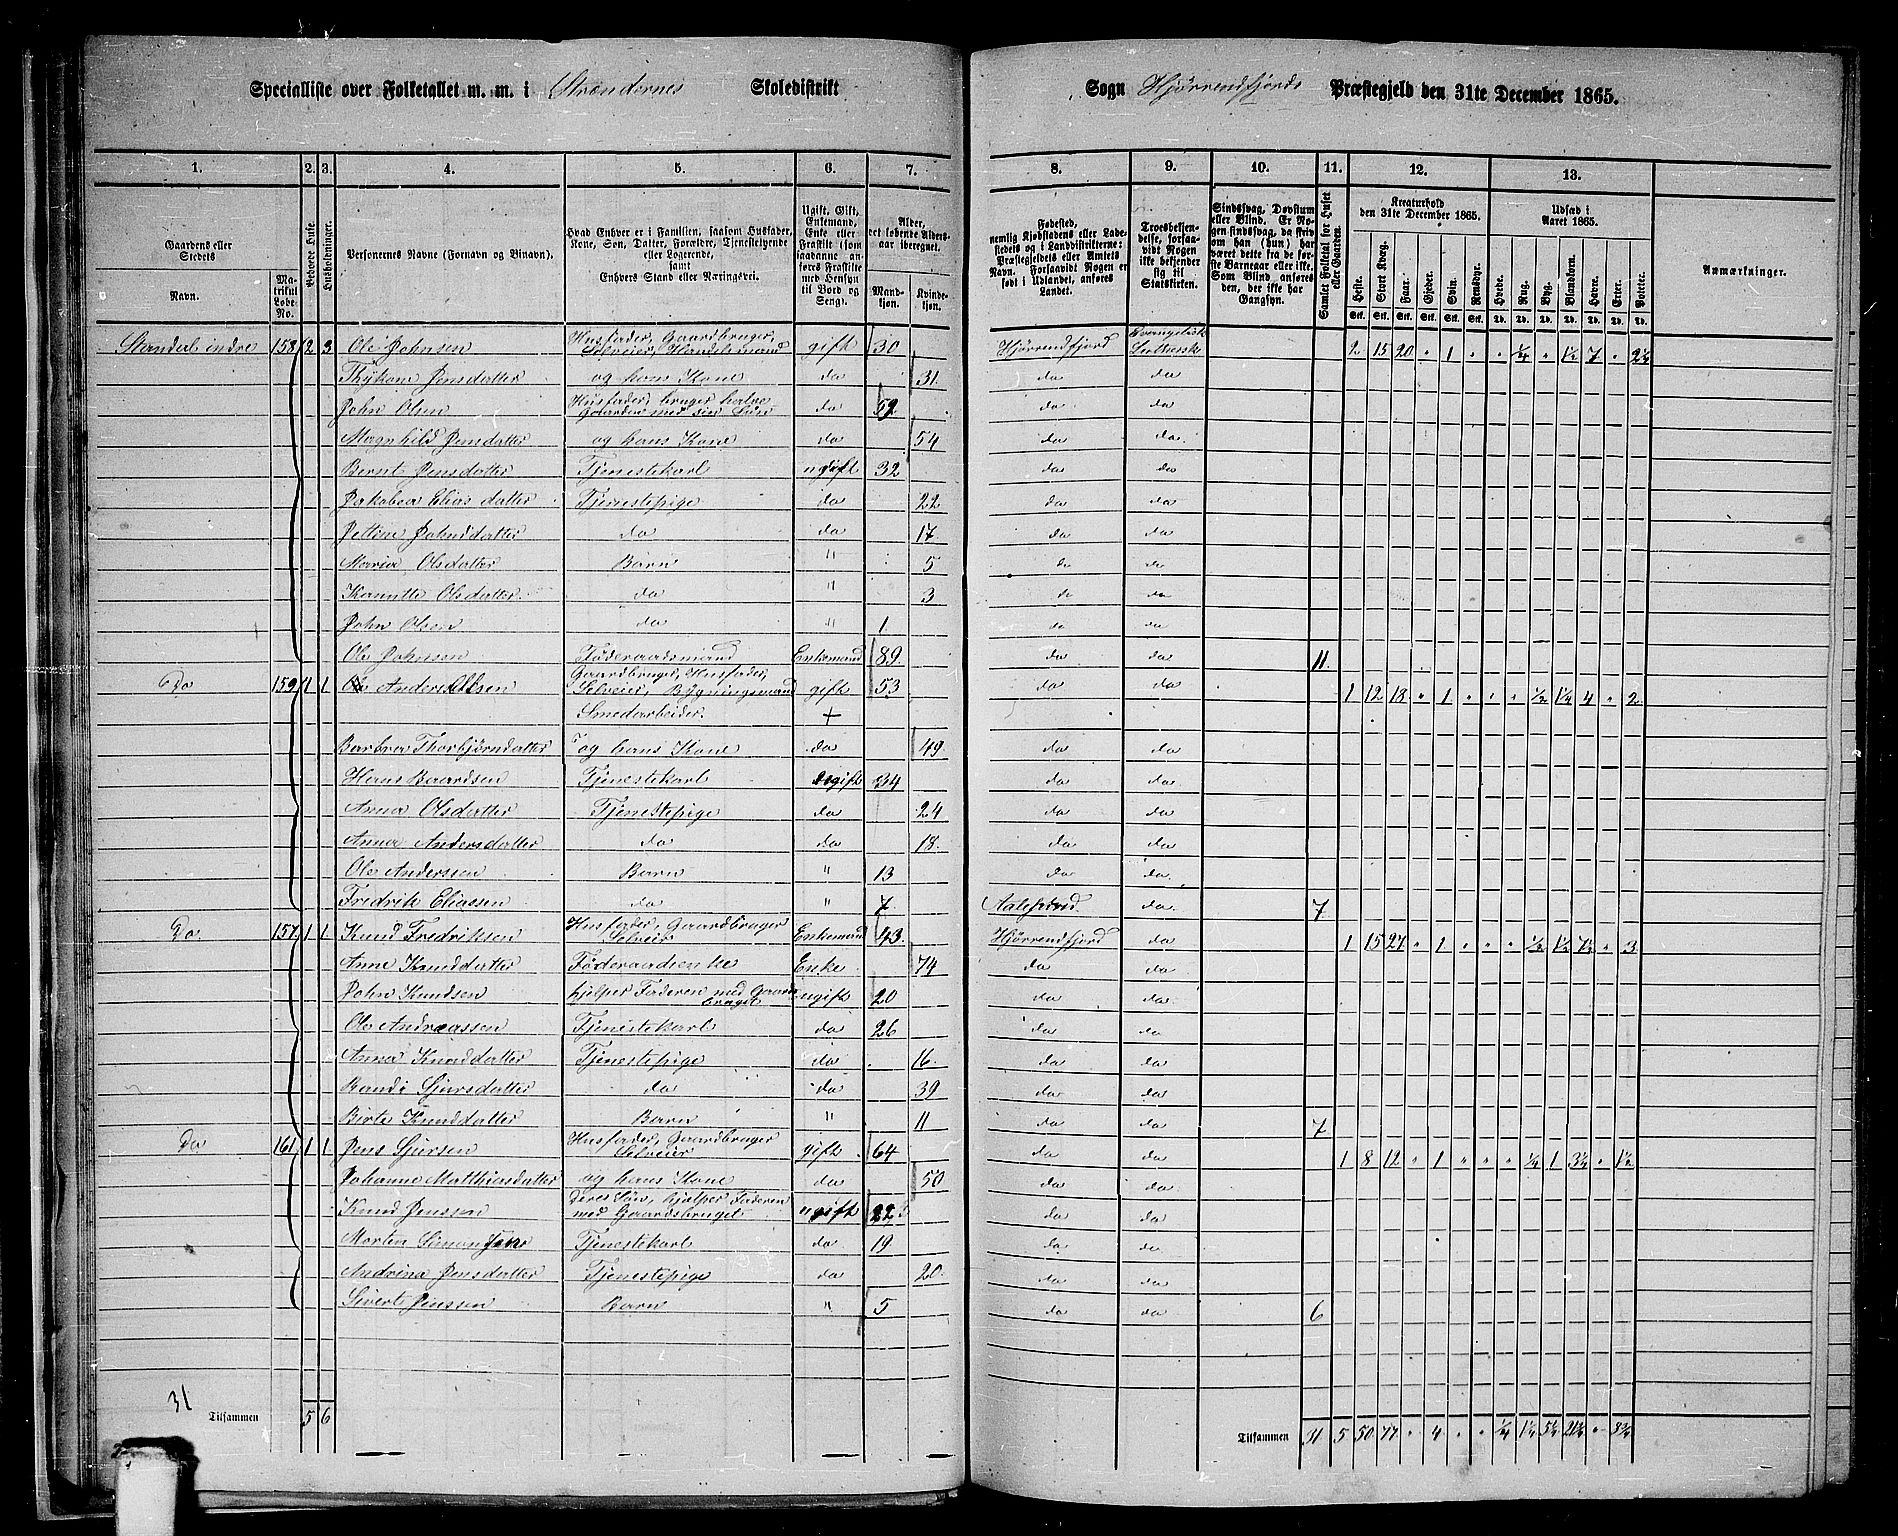 Specialliste over Folketallet m. m. i Strandernes Skoledistrikt
Sogn Hjørrendfjords Præstegjeld den 31te December 1865.
1. 2. 3. 4. 5. 6. 7. 8. 9. 10. 11. 12. 13.
Gaardens eller Stedets
Navn.
Matrikul Løbe-No.
Beboede Huse
Husholdninger.
Personernes Navne (Fornavn og Binavn).
Hvad Enhver er i Familien, saasom Husfader, Kone, Søn, Datter, Forældre, Tjenestetyende eller Logerende, samt Enhvers Stand eller Næringsvei.
Ugift, Gift, Enkemand, Enke eller Fraskilt (som saadanne anføres Fraskilte med Hensyn til Bord og Seng).
Alder, det løbende Aldersaar iberegnet.
Mandkjøn. Kvindekjøn.
Fødested, nemlig Kjøbstadens eller Ladestedets og i Landdistrikterne: Præstegjeldets eller Amtets Navn. Forsaavidt Nogen er født i Udlandet, anføres Landet.
Troesbekjendelse, forsaavidt Nogen ikke bekjender sig til Statskirken.
Sindssvag, Døvstum eller Blind. Er Nogen sindssvag, da skriv om han (hun) har været dette fra de første Barneaar eller ikke. Som Blind anføres den, der ikke har Gangsyn.
Samlet Folketal for Huset eller Gaarden.
Kreaturhold den 31te December 1865.
Heste. Stort Kvæg. Faar. Gjeder. Svin. Rensdyr.
Udsæd i Aaret 1865.
Hvede. Rug. Byg. Blandkorn. Havre. Erter. Poteter.
Anmærkninger.
Standal indre 158 2 3 Ole Johnsen Husfader, Gaardbruger, Selveier, Handelsmand gift 30 Hjørrendfjord Evangelisk Lutherske 2 15 20 " 1 " " 1/4 " 1 1/2 7 " 2 1/4
Jensdatter og hans Kone do 31. do do
John Olsen Husfader, bruger halve Gaarden med sin Søn do 59 do do
Magnhild Jensdatter og hans Kone do 54 do do
Bernt Jensdatter Tjenestekarl ugift 32 do do
Jakobea Eliasdatter Tjenestepige do 22 do do
Johnsdatter do do 17 do do
Maria Olsdatter Barn " 5 do do
Olsdatter do " 3 do do
John Olsen do " 1 do do
Ole Johnsen Føderaadsmand Enkemand 89. do do 11
Do 159 1 1 Gaardbruger, Husfader, Selveier, Bygningsmand gift 53 do do 1 12 18 " 1 " " " 1/2 1 1/4 4 " 2
Smedarbeider. +
Barbra Thorbjørndatter og hans Kone do 49 do do
Hans Baardsen Tjenestekarl ugift 34 do do
Anna Olsdatter Tjenestepige do 24 do do
Anna Andersdatter do do 18. do do
Ole Anderssen Barn " 13 do do
Fredrik Eliassen do " 7 Aalesund. do 7
Do 157 1 1 Knud Fredriksen Husfader, Gaardbruger Selveier Enkemand 43. Hjørrendfjord do 1 15 27 " 1 " " " 1/2 1 1/2 7 1/2 " 3
Anne Knuddatter Føderaadsenke Enke 74 do do
John Knudsen hjelper Faderen med Gaardbruget ugift 20 do do
Ole Andreassen Tjenestekarl do 26 do do
Anna Knuddatter Tjenestepige do 16. do do
Sjursdatter do do 39 do do
Birte Knuddatter Barn " 11 do do 7
Do 161 1 1 Jens Sjursen Husfader, Gaardbruger Selveier gift 64 do do 1 8 12 " 1 " " " 1/4 1 3 1/4 " 1 1/2
Johanne Matthiasdatter og hans Kone do 50 do do
Knud Jenssen deres Søn, hjelper Faderen med Gaardsbruget ugift 22 do do
Morten Simonsen Tjenestekarl do 19 do do
Andrina Jensdatter Tjenestepige do 20. do do
Sivert Jenssen Barn " 5 do do 6
31
Tilsammen 5 6
Tilsammen 31 5 50 77 " 4 " " 1/4 1 1/4 5 1/4 21 3/4 " 8 3/4